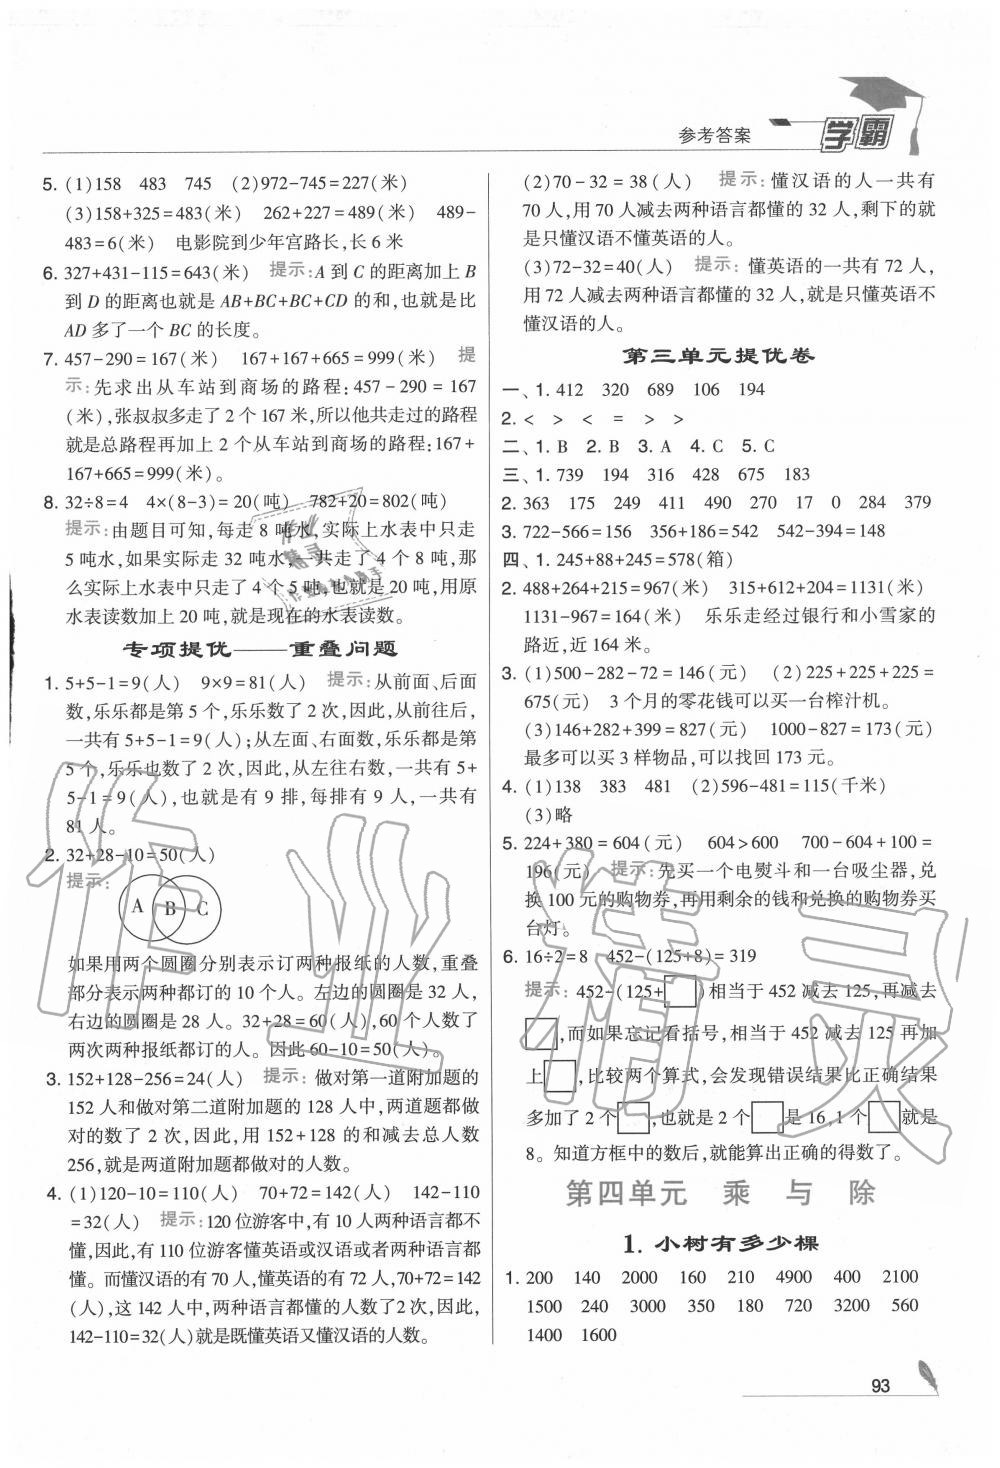 参考答案 学霸
5. (1)158 483 745 (2)972-745=227(米)
(3)158+325=483(米) 262+227=489(米) 489-
483=6(米) 电影院到少年宫路长,长6米
6. 327+431-115=643(米) 提示:A到C的距离加上B
到D的距离也就是AB+BC+BC+CD的和,也就是比
AD多了一个BC的长度。
7. 457-290=167(米) 167+167+665=999(米) 提
示:先求出从车站到商场的路程:457-290=167
(米),张叔叔多走了2个167米,所以他共走过的路程
就是总路程再加上2个从车站到商场的路程:167+
167+665=999(米)。
8. 32÷8=4 4×(8-3)=20(吨) 782+20=802(吨)
提示:由题目可知,每走8吨水,实际上水表中只走
5吨水,如果实际走32吨水,一共走了4个8吨,那
么实际上水表中只走了4个5吨,也就是20吨,用原
水表读数加上20吨,就是现在的水表读数。
专项提优——重叠问题
1. 5+5-1=9(人) 9×9=81(人) 提示:从前面、后面
数,乐乐都是第5个,乐乐数了2次,因此,从前往后,
一共有5+5-1=9(人);从左面、右面数,乐乐都是第
5个,乐乐也数了2次,因此,从左往右数,一共有5+
5-1=9(人),也就是有9排,每排有9人,一共有
81人。
2. 32+28-10=50(人)
提示:
A B C
如果用两个圆圈分别表示订两种报纸的人数,重叠
部分表示两种都订的10个人。左边的圆圈是32人,
右边的圆圈是28人。32+28=60(人),60个人数了
两次两种报纸都订的人。因此60-10=50(人)。
3. 152+128-256=24(人) 提示:做对第一道附加题的
152人和做对第二道附加题的128人中,两道题都做
对的数了2次,因此,用152+128的和减去总人数
256,就是两道附加题都做对的人数。
4. (1)120-10=110(人) 70+72=142(人) 142-110
=32(人) 提示:120位游客中,有10人两种语言都不
懂,因此,有110位游客懂英语或汉语或者两种语言都
懂。而懂汉语的有70人,懂英语的有72人,70+72=142
(人),这142人中,两种语言都懂的人数了2次,因此,
142-110=32(人)就是既懂英语又懂汉语的人数。
(2)70-32=38(人) 提示:懂汉语的人一共有
70人,用70人减去两种语言都懂的32人,剩下的就
是只懂汉语不懂英语的人。
(3)72-32=40(人) 提示:懂英语的一共有72人,
用72人减去两种语言都懂的32人,就是只懂英语不
懂汉语的人。
第三单元提优卷
一、1. 412 320 689 106 194
2. < > < = > >
二、1. B 2. B 3. A 4. C 5. C
三、1. 739 194 316 428 675 183
2. 363 175 249 411 490 270 17 0 284 379
3. 722-566=156 356+186=542 542-394=148
四、1. 245+88+245=578(箱)
2. 488+264+215=967(米) 315+612+204=1131(米)
1131-967=164(米) 乐乐走经过银行和小雪家的
路近,近164米。
3. (1)500-282-72=146(元) (2)225+225+225=
675(元) 3个月的零花钱可以买一台榨汁机。
(3)146+282+399=827(元) 1000-827=173(元)
最多可以买3样物品,可以找回173元。
4. (1)138 383 481 (2)596-481=115(千米)
(3)略
5. 224+380=604(元) 604>600 700-604+100=
196(元) 提示:先买一个电熨斗和一台吸尘器,兑
换100元的购物券,再用剩余的钱和兑换的购物券买
台灯。
6. 16÷2=8 452-(125+8)=319
提示:452-(125+□)相当于452减去125,再减去
□,而如果忘记看括号,相当于452减去125再加
上□,比较两个算式,会发现错误结果比正确结果
多加了2个□,也就是2个□是16,1个□就是
8。知道方框中的数后,就能算出正确的得数了。
第四单元 乘与除
1. 小树有多少棵
1. 200 140 2000 160 210 4900 400 2100
1500 240 3000 350 180 720 3200 560
1400 1600
93
作业精灵